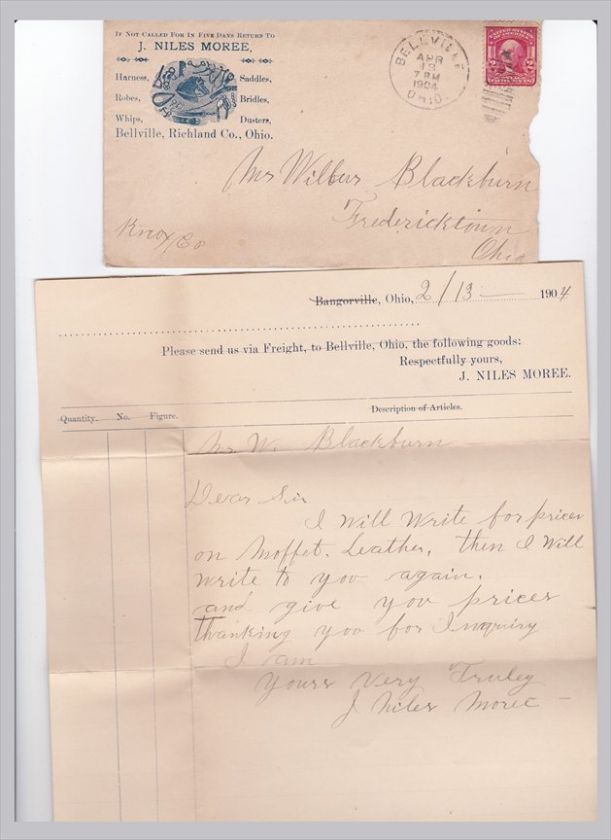 If Not Called For In Five Days Return To
J. NILES MOREE,
Harness, Saddles,
Robes, Bridles,
Whips, Dusters,
Bellville, Richland Co., Ohio.
BELLVILLE
APR
13
7 PM
1904
OHIO.
UNITED STATES
OF AMERICA
2 2
Mr Wilbur Blackburn
Fredericktown
Knox Co
Ohio
Bangorville, Ohio, 2/13 1904
Please send us via Freight, to Bellville, Ohio, the following goods:
Respectfully yours,
J. NILES MOREE.
Quantity. No. Figure. Description of Articles.
Mr. W. Blackburn
Dear Sir
I Will Write for prices
on Moffet. Leather, then I Will
write to you again.
and give you prices
thanking you for Inquiry
I am
Yours Very Truley
J Niles Moree